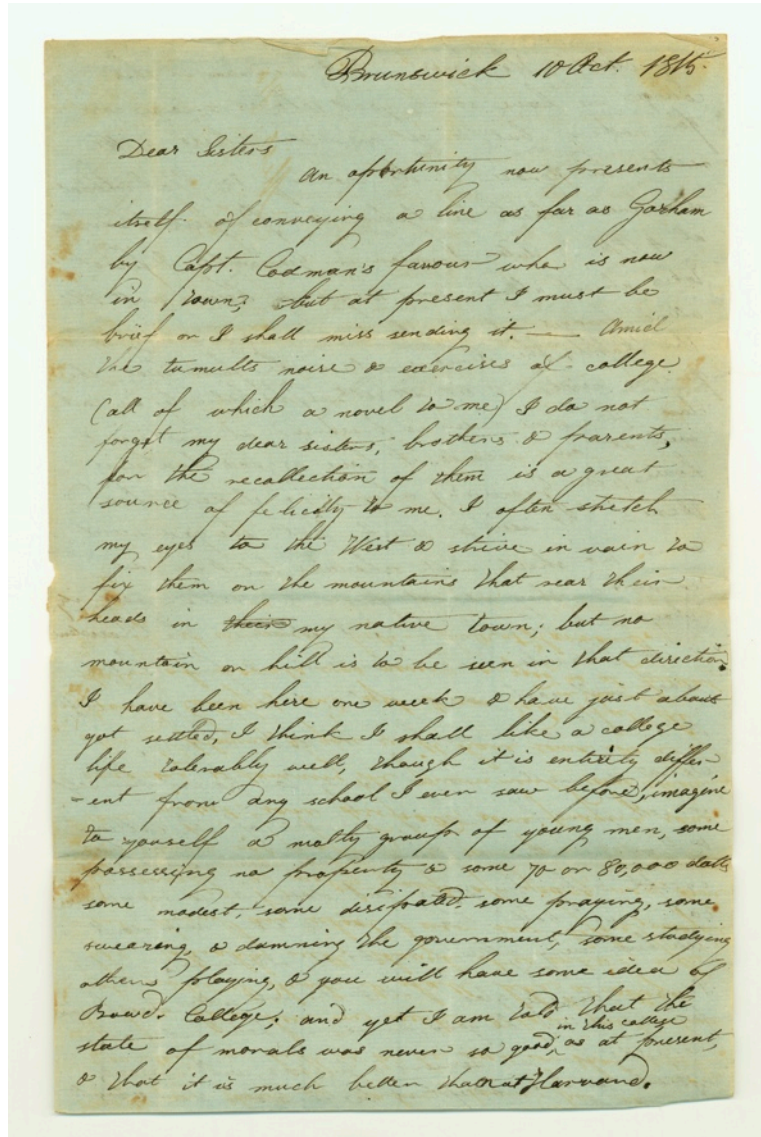 Brunswick 10 Oct. 1815.
Dear Sisters
An opportunity now presents
itself of conveying a line as far as Gorham
by Capt. Codman's favour who is now
in town; but at present I must be
brief or I shall miss sending it. — Amid
the tumults noise & exercises of college
(all of which a novel to me) I do not
forget my dear sisters, brothers & parents,
for the recollection of them is a great
source of felicity to me. I often stretch
my eyes to the West & strive in vain to
fix them on the mountains that rear their
heads in their my native town; but no
mountain or hill is to be seen in that direction.
I have been here one week & have just about
got settled, I think I shall like a college
life tolerably well, though it is entirely differ-
-ent from any school I ever saw before, imagine
to yourself a motly group of young men, some
possessing no property & some 70 or 80,000 dolls
some modest, some dissipated, some praying, some
swearing, & damning the government, some studying
others playing, & you will have some idea of
Bowd. College; and yet I am told that the
in this college
state of morals was never so good, as at present,
& that it is much better than at Harvard.